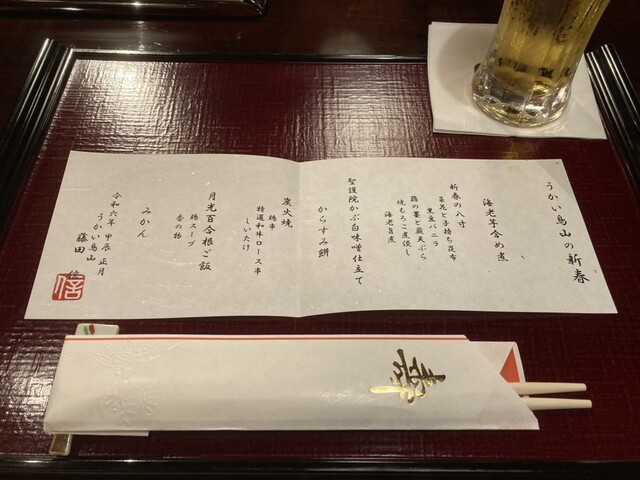 うかい鳥山の新春
海老芋含め煮
新春の八寸
菜花と子持ち昆布
黒豆バニラ
蕗の薹と蕨天ぷら
焼もろこ煮浸し
海老旨煮
聖護院かぶ白味噌仕立て
からすみ餅
炭火焼
鶉串
特選和牛ロース串
しいたけ
月光百合根ご飯
鶏スープ
香の物
みかん
令和六年 甲辰 正月
うかい鳥山
藤田
信
寿